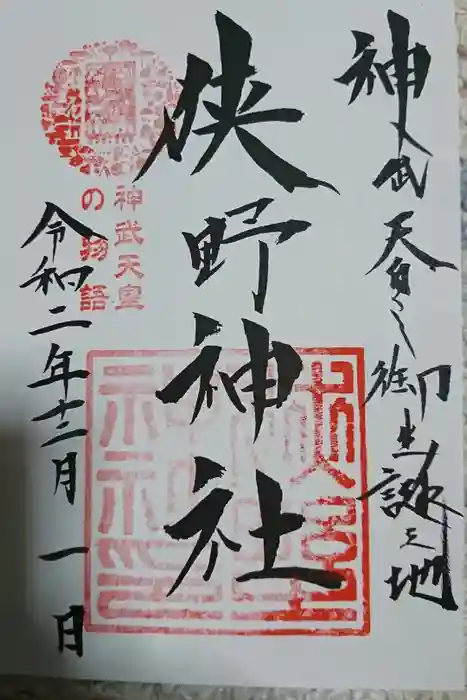 神武天皇御生誕之地
狭野神社
神武天皇
の物語
令和二年十二月一日